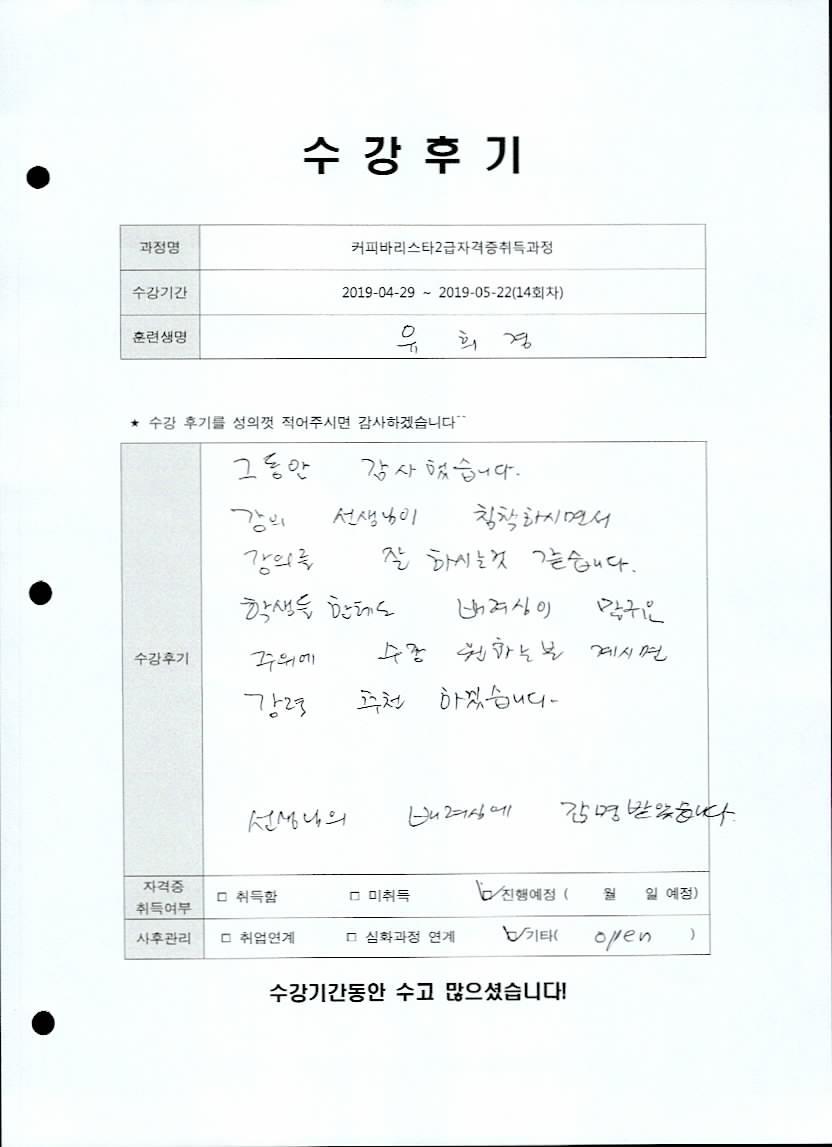 수 강 후 기
과정명 커피바리스타2급자격증취득과정
수강기간 2019-04-29 ~ 2019-05-22(14회차)
훈련생명 유 희 경
★ 수강 후기를 성의껏 적어주시면 감사하겠습니다~~
수강후기
그동안 감사했습니다.
강의 선생님이 침착하시면서
강의를 잘 하시는것 같습니다.
학생들한테도 배려심이 많구요
주위에 수강 원하는분 계시면
강력 추천 하겠습니다.
선생님의 배려심에 감명받았습니다.
자격증 취득여부 □ 취득함 □ 미취득 ☑진행예정 ( 월 일 예정)
사후관리 □ 취업연계 □ 심화과정 연계 ☑기타( open )
수강기간동안 수고 많으셨습니다!